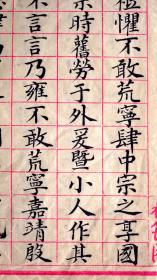 祗懼不敢荒寧肆中宗之享國
宗時舊勞于外爰暨小人作其
不言言乃雍不敢荒寧嘉靖殷